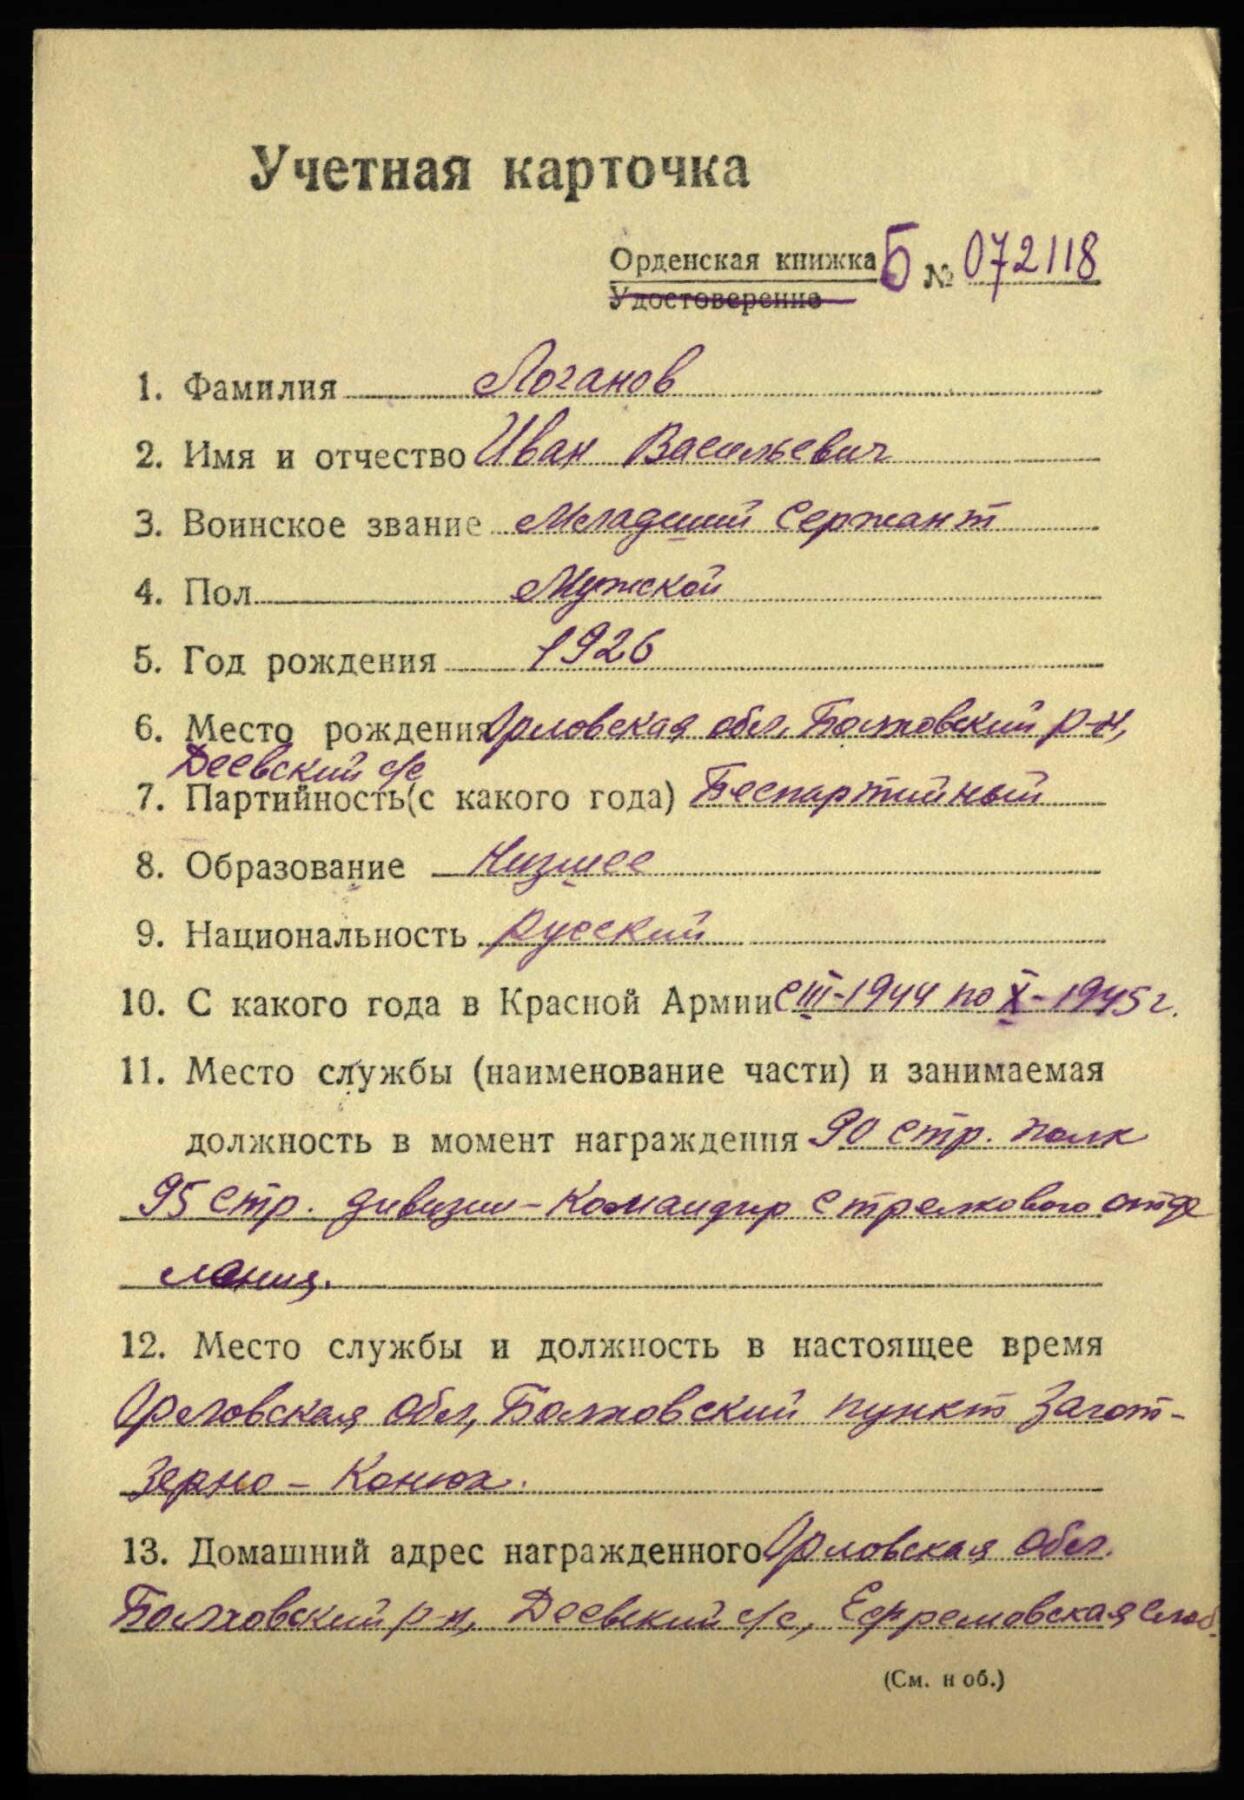 Учетная карточка
Орденская книжка Б № 072118
Удостоверение
1. Фамилия Логанов
2. Имя и отчество Иван Васильевич
3. Воинское звание Младший Сержант
4. Пол Мужской
5. Год рождения 1926
6. Место рождения Орловская обл, Болховский р-н,
Деевский с/с
7. Партийность (с какого года) Беспартийный
8. Образование Низшее
9. Национальность Русский
10. С какого года в Красной Армии С III-1944 по X-1945 г.
11. Место службы (наименование части) и занимаемая
должность в момент награждения 90 стр. полк
95 стр. дивизии - Командир стрелкового отде
ления.
12. Место службы и должность в настоящее время
Орловская обл, Болховский пункт Загот-
зерно - Конюх.
13. Домашний адрес награжденного Орловская обл.
Болховский р-н, Деевский с/с, Ефремовская слоб.
(См. н об.)